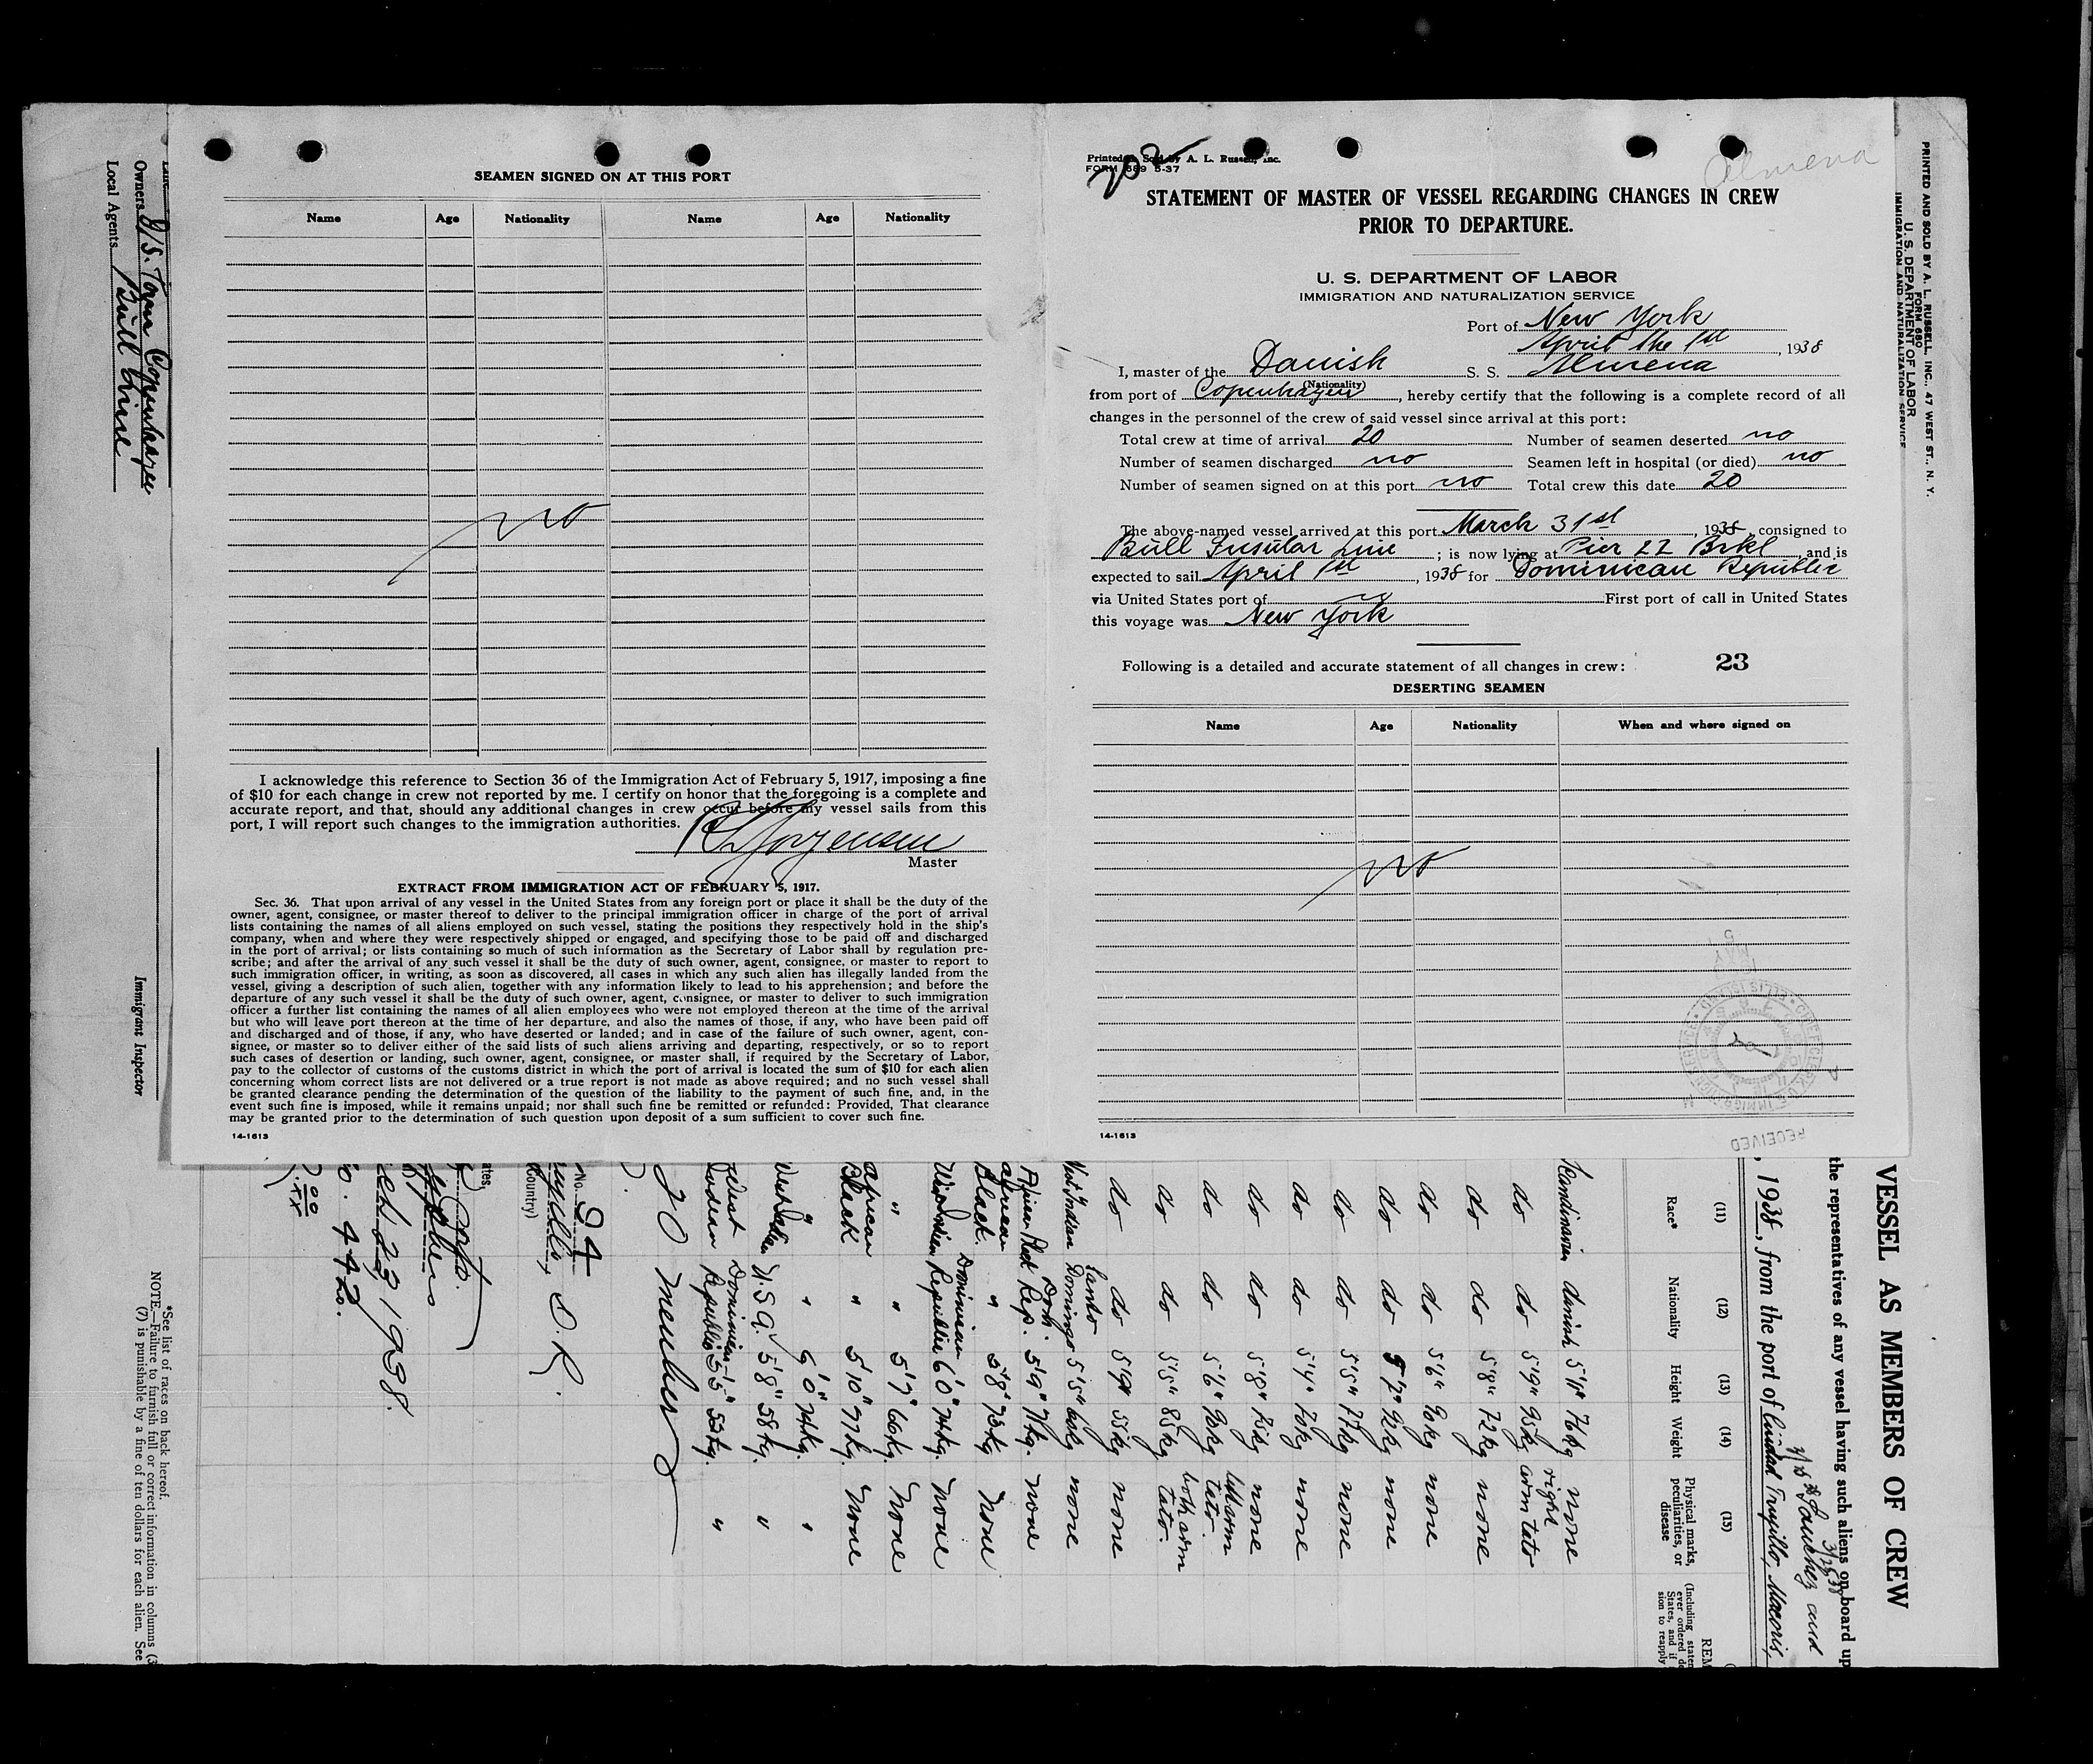 SEAMEN SIGNED ON AT THIS PORT
Name Age Nationality Name Age Nationality
no
I acknowledge this reference to Section 36 of the Immigration Act of February 5, 1917, imposing a fine
of $10 for each change in crew not reported by me. I certify on honor that the foregoing is a complete and
accurate report, and that, should any additional changes in crew occur before my vessel sails from this
port, I will report such changes to the immigration authorities.
Jorgensen
Master
EXTRACT FROM IMMIGRATION ACT OF FEBRUARY 5, 1917.
Sec. 36. That upon arrival of any vessel in the United States from any foreign port or place it shall be the duty of the
owner, agent, consignee, or master thereof to deliver to the principal immigration officer in charge of the port of arrival
lists containing the names of all aliens employed on such vessel, stating the positions they respectively hold in the ship's
company, when and where they were respectively shipped or engaged, and specifying those to be paid off and discharged
in the port of arrival; or lists containing so much of such information as the Secretary of Labor shall by regulation pre-
scribe; and after the arrival of any such vessel it shall be the duty of such owner, agent, consignee, or master to report to
such immigration officer, in writing, as soon as discovered, all cases in which any such alien has illegally landed from the
vessel, giving a description of such alien, together with any information likely to lead to his apprehension; and before the
departure of any such vessel it shall be the duty of such owner, agent, consignee, or master to deliver to such immigration
officer a further list containing the names of all alien employees who were not employed thereon at the time of the arrival
but who will leave port thereon at the time of her departure, and also the names of those, if any, who have been paid off
and discharged and of those, if any, who have deserted or landed; and in case of the failure of such owner, agent, con-
signee, or master so to deliver either of the said lists of such aliens arriving and departing, respectively, or so to report
such cases of desertion or landing, such owner, agent, consignee, or master shall, if required by the Secretary of Labor,
pay to the collector of customs of the customs district in which the port of arrival is located the sum of $10 for each alien
concerning whom correct lists are not delivered or a true report is not made as above required; and no such vessel shall
be granted clearance pending the determination of the question of the liability to the payment of such fine, and, in the
event such fine is imposed, while it remains unpaid; nor shall such fine be remitted or refunded: Provided, That clearance
may be granted prior to the determination of such question upon deposit of a sum sufficient to cover such fine.
14-1613
Printed & Sold by A. L. Russell, Inc.
FORM 689 5-37
Almena
STATEMENT OF MASTER OF VESSEL REGARDING CHANGES IN CREW
PRIOR TO DEPARTURE.
U. S. DEPARTMENT OF LABOR
IMMIGRATION AND NATURALIZATION SERVICE
Port of New York
April the 1st, 1938
I, master of the Danish S. S. Almena
(Nationality)
from port of Copenhagen, hereby certify that the following is a complete record of all
changes in the personnel of the crew of said vessel since arrival at this port:
Total crew at time of arrival 20 Number of seamen deserted no
Number of seamen discharged no Seamen left in hospital (or died) no
Number of seamen signed on at this port no Total crew this date 20
The above-named vessel arrived at this port March 31st, 1938, consigned to
Bull Insular Line; is now lying at Pier 22 Brkl, and is
expected to sail April 1st, 1938 for Dominican Republic
via United States port of First port of call in United States
this voyage was New York
Following is a detailed and accurate statement of all changes in crew: 23
DESERTING SEAMEN
Name Age Nationality When and where signed on
no
14-1613
RECEIVED
PRINTED AND SOLD BY A. L. RUSSELL, INC., 47 WEST ST., N. Y.
FORM 680
U. S. DEPARTMENT OF LABOR
IMMIGRATION AND NATURALIZATION SERVICE
VESSEL AS MEMBERS OF CREW
the representatives of any vessel having such aliens on board up
, 1938, from the port of Ciudad Trujillo, Macoris,
Sanchez and
(11) (12) (13) (14) (15)
Race* Nationality Height Weight Physical marks, peculiarities, or disease
Scandinavian danish 5'11" 76kg none
do do 5'9" 95kg right arm tato
do do 5'8" 72kg none
do do 5'6" 90kg none
do do 5'7" 92kg none
do do 5'5" 77kg none
do do 5'4" 70kg none
do do 5'8" 75kg none
do do 5'6" 90kg left arm tato
do do 5'5" 85kg both arm tato.
do do 5'9" 55kg none
West Indian Santo Domingo 5'5" 60kg none
African Black Dom. Rep. 5'9" 71kg. none
African Black " 5'8" 73kg none
West Indian Dominican Republic 6'0" 74kg. none
" " 5'7" 66kg. none
African Black " 5'10" 77kg. none
" " 6'0" 74kg. "
West Indian U.S.A. 5'8" 58kg. "
West Indian Dominican Republic 5'5" 53kg. "
20 Members
No. 94
D. R.
23 1938.
No. 442.
Immigrant Inspector
*See list of races on back hereof.
NOTE.—Failure to furnish full or correct information in columns (3
(7) is punishable by a fine of ten dollars for each alien. See
Owners D/S. Torm Copenhagen
Local Agents Bull Line